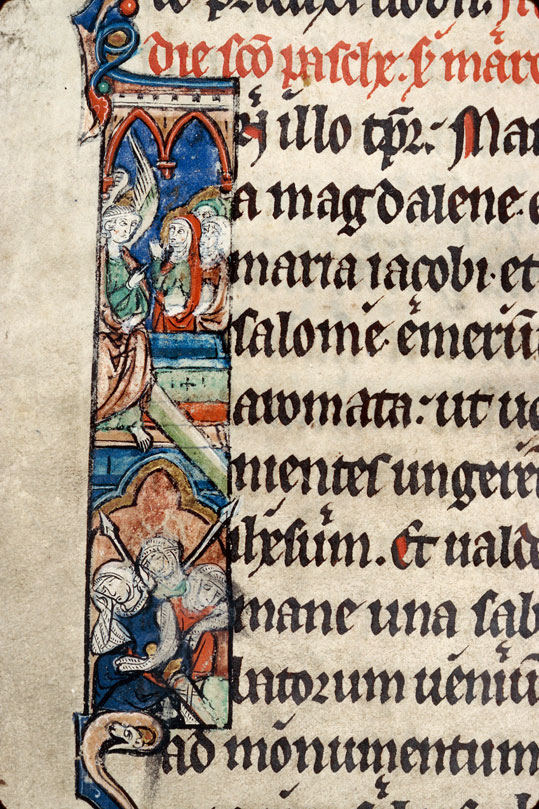 die sc̄o pasche. s̄ marc
N illo tp̄r. Mar
a magdalene. e
maria iacobi. et
salome. emerūt
aromata. ut ue
nientes ungerēt
ihesum. Et uald
mane una sab
batorum ueniūt
ad monumentum